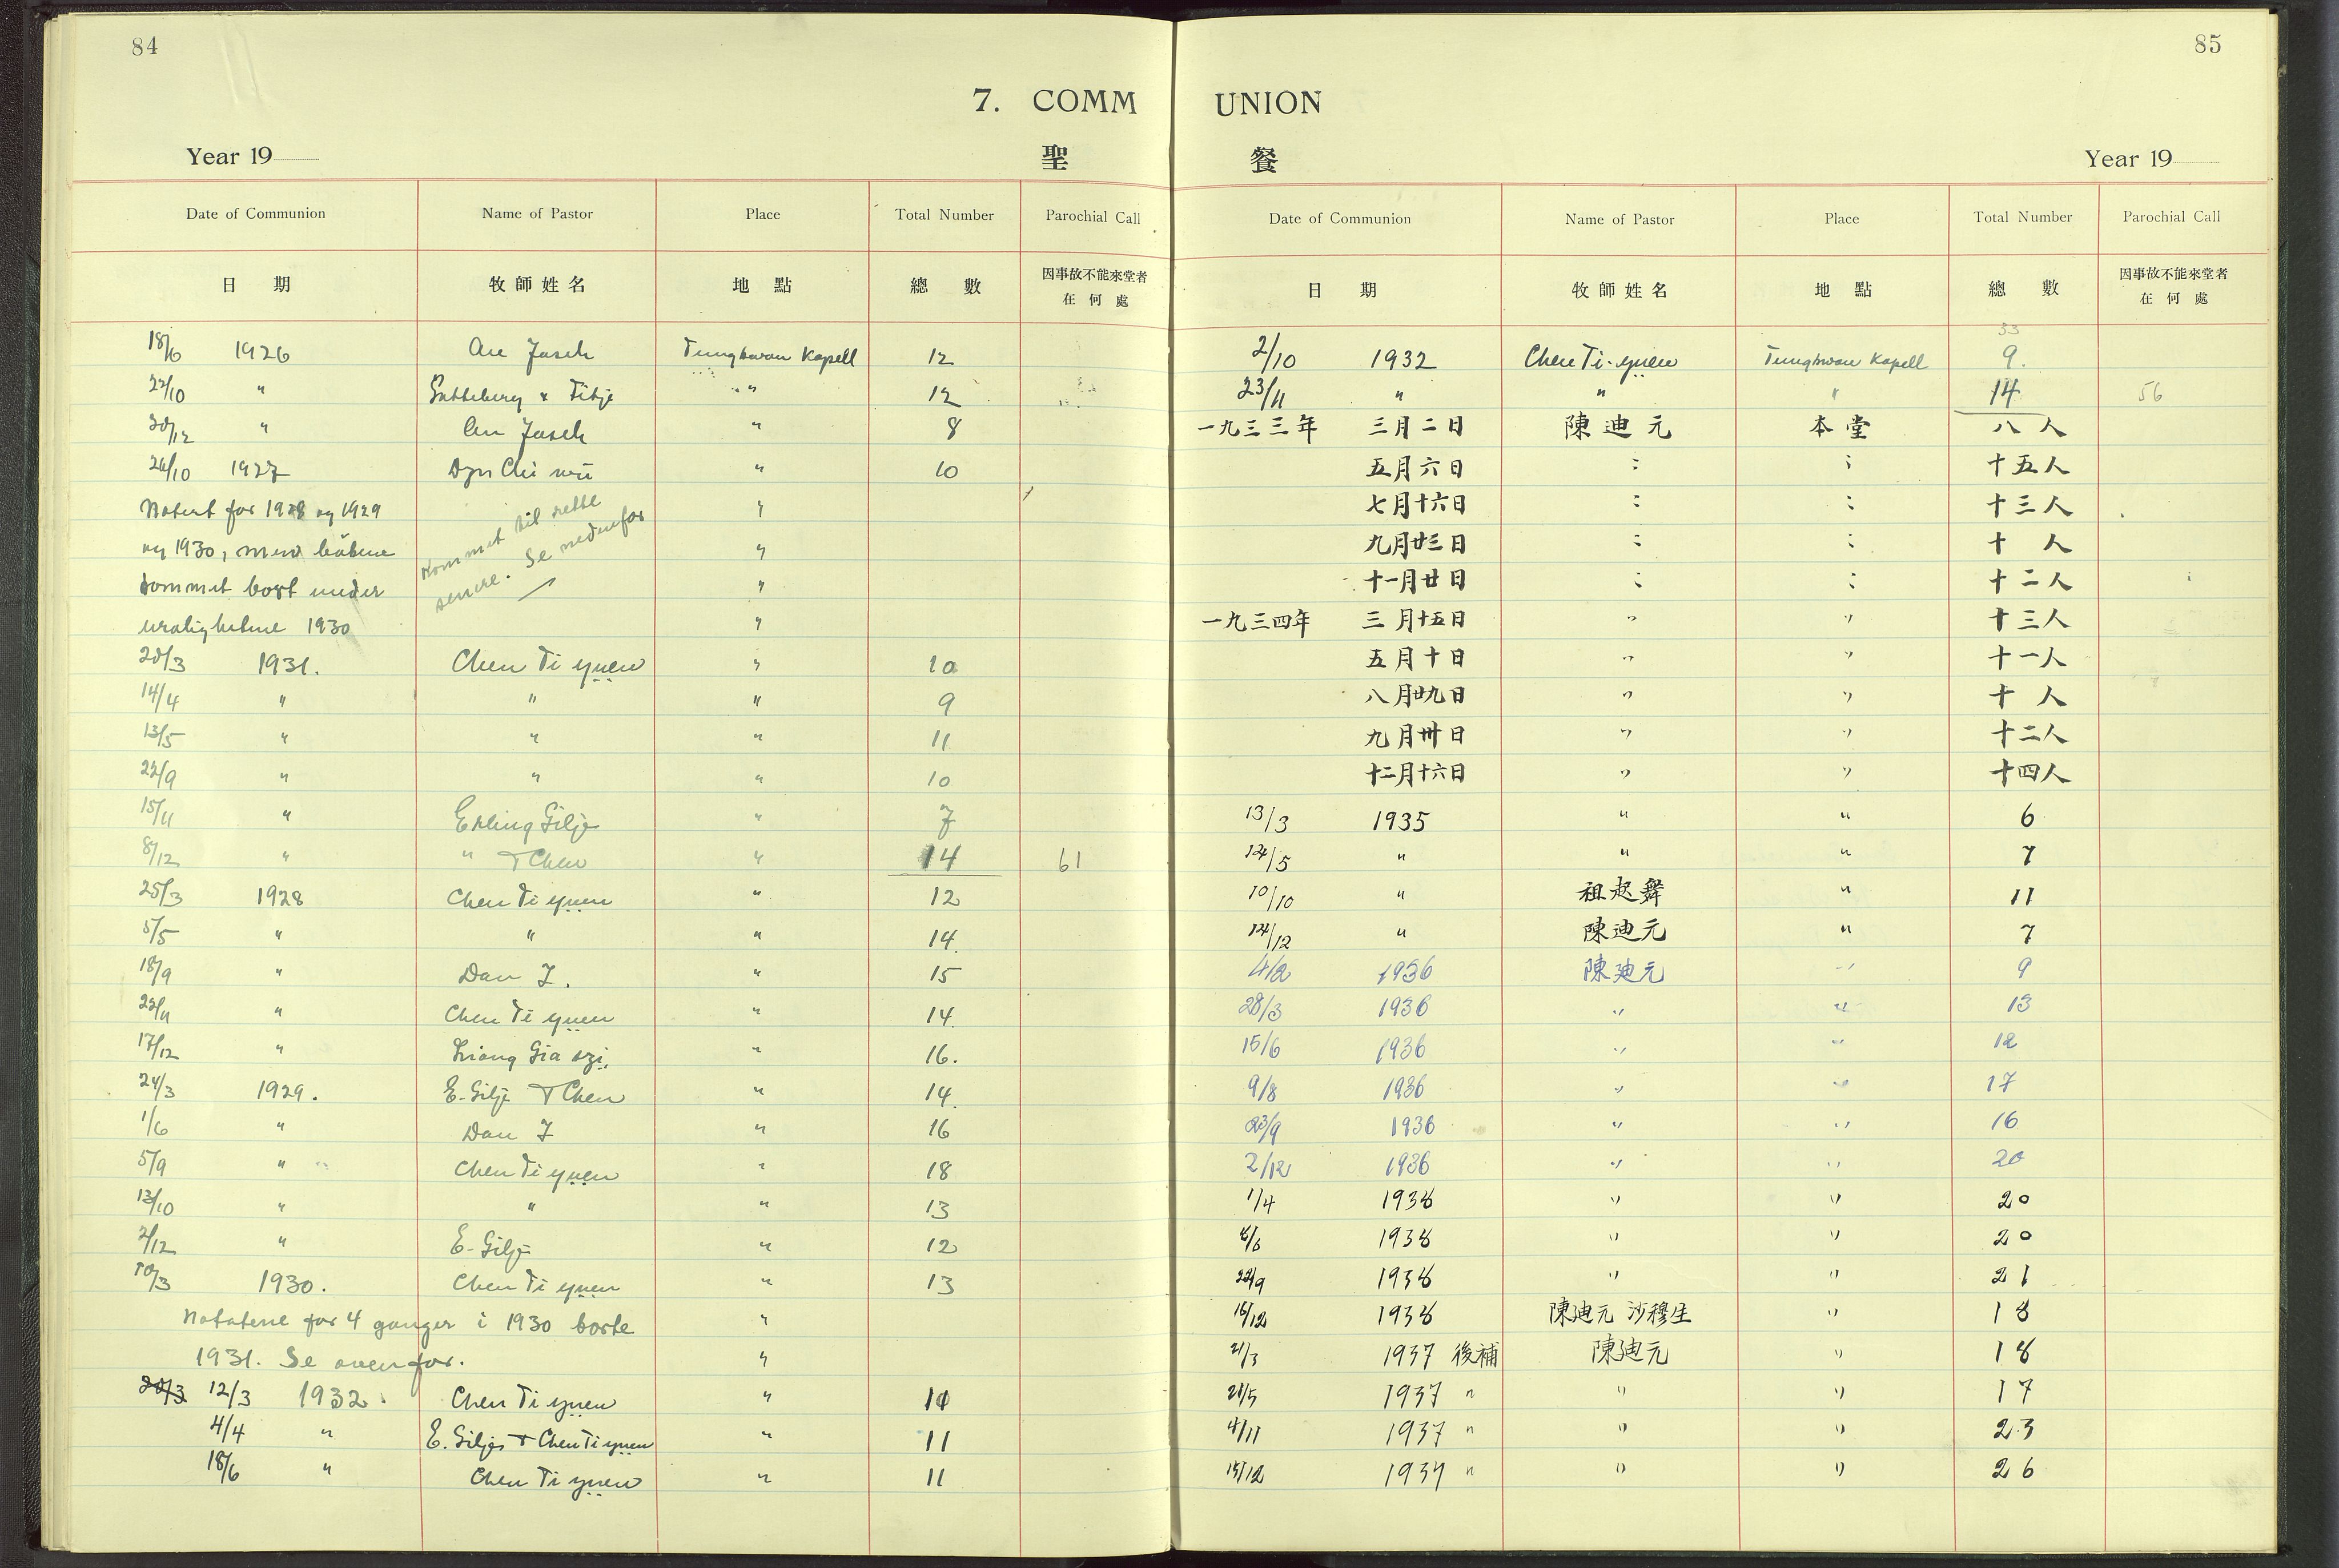 84
7. COMM
Year 19
聖
Date of Communion Name of Pastor Place Total Number Parochial Call
日 期 牧師姓名 地 點 總 數 因事故不能來堂者
在何處
18/6 1926 Tungkwan Kapell 12
22/10 " " 12
30/12 " " 8
26/10 1927 " 10
Notert for 1928 og 1929 "
og 1930, men bökene "
kommet bort under "
urolighetene 1930 "
Kommet til rette
senere. Se nedenfor
20/3 1931. Chen Ti yuen " 10
14/4 " " " 9
13/5 " " " 11
22/9 " " " 10
15/11 " Erling Gilje " 7
8/12 " " + Chen " 14 61
25/3 1928 Chen Ti yuen " 12
5/5 " " " 14.
18/9 " Dan I. " 15
22/11 " Chen Ti yuen " 14.
17/12 " Liang Gia szi " 16.
24/3 1929. E. Gilje + Chen " 14.
1/6 " Dan I " 16
5/9 " Chen Ti yuen " 18
13/10 " " " 13
2/12 " E. Gilje " 12
10/3 1930. Chen Ti yuen " 13
Notatene for 4 ganger i 1930 borte "
1931. Se ovenfor. "
20/3 12/3 1932. Chen Ti yuen " 10
4/4 " E. Gilje + Chen Ti yuen " 11
18/6 " Chen Ti yuen " 11
85
UNION
餐
Year 19
Date of Communion Name of Pastor Place Total Number Parochial Call
日 期 牧師姓名 地 點 總 數 因事故不能來堂者
在何處
33
2/10 1932 Chen Ti-yuen Tungkwan Kapell 9.
23/11 " " " 14 56
一九三三年 三月二日 陳迪元 本堂 八人
五月六日 〃 〃 十五人
七月十六日 〃 〃 十三人
九月廿三日 〃 〃 十人
十一月廿日 〃 〃 十二人
一九三四年 三月十五日 〃 〃 十三人
五月十日 〃 〃 十一人
八月廿九日 〃 〃 十人
九月卅日 〃 〃 十二人
十二月十六日 〃 〃 十四人
13/3 1935 " " 6
12/5 " " " 7
10/10 " 祖起舞 " 11
12/12 " 陳迪元 " 7
4/2 1936 陳迪元 " 9
28/3 1936 " " 13
15/6 1936 " " 12
9/8 1936 " " 17
23/9 1936 " " 16
2/12 1936 " " 20
1/4 1938 " " 20
6/6 1938 " " 20
22/9 1938 " " 21
16/12 1938 陳迪元 沙穆生 " 18
21/3 1937 後補 陳迪元 " 18
21/5 1937 " " " 17
4/11 1937 " " " 23
15/12 1937 " " " 26